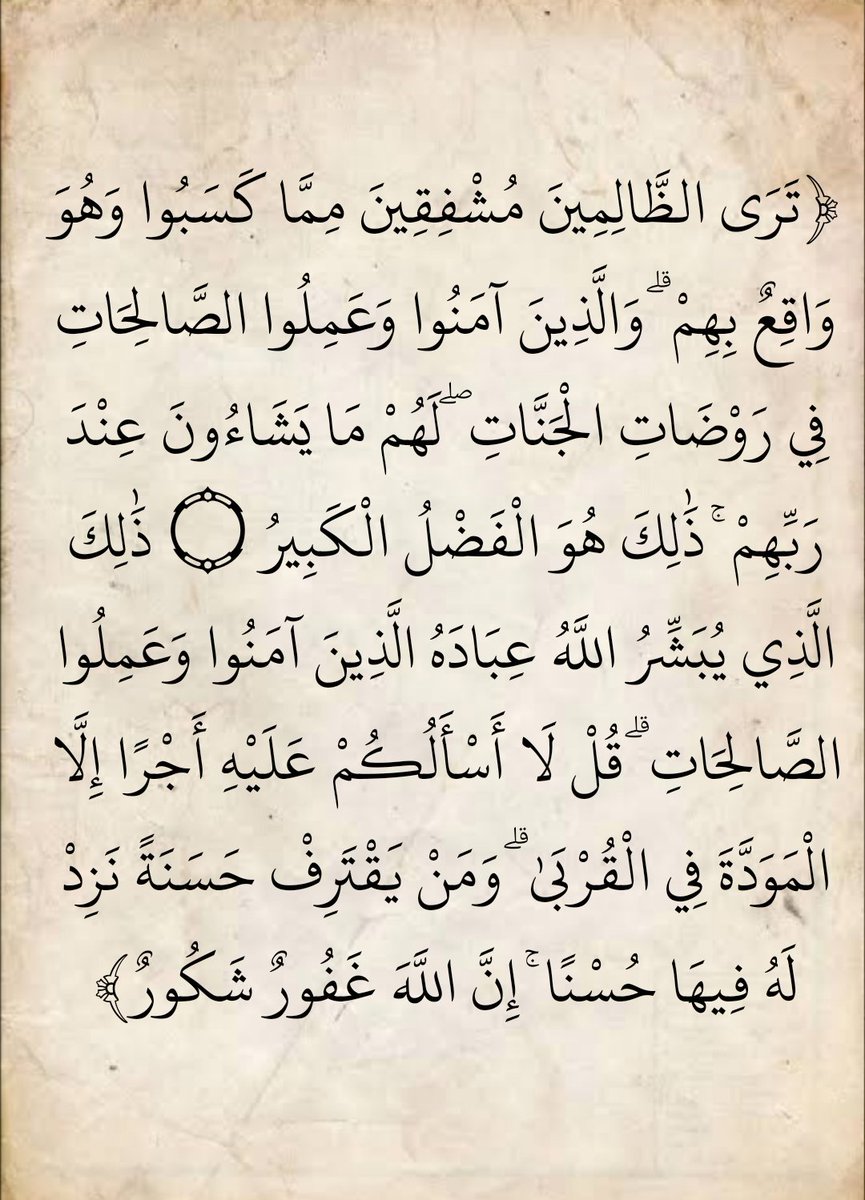 ﴿تَرَى الظَّالِمِينَ مُشْفِقِينَ مِمَّا كَسَبُوا وَهُوَ
وَاقِعٌ بِهِمْ ۗ وَالَّذِينَ آمَنُوا وَعَمِلُوا الصَّالِحَاتِ
فِي رَوْضَاتِ الْجَنَّاتِ ۖ لَهُمْ مَا يَشَاءُونَ عِنْدَ
رَبِّهِمْ ۚ ذَٰلِكَ هُوَ الْفَضْلُ الْكَبِيرُ ۝ ذَٰلِكَ
الَّذِي يُبَشِّرُ اللَّهُ عِبَادَهُ الَّذِينَ آمَنُوا وَعَمِلُوا
الصَّالِحَاتِ ۗ قُلْ لَا أَسْأَلُكُمْ عَلَيْهِ أَجْرًا إِلَّا
الْمَوَدَّةَ فِي الْقُرْبَىٰ ۗ وَمَنْ يَقْتَرِفْ حَسَنَةً نَزِدْ
لَهُ فِيهَا حُسْنًا ۚ إِنَّ اللَّهَ غَفُورٌ شَكُورٌ﴾